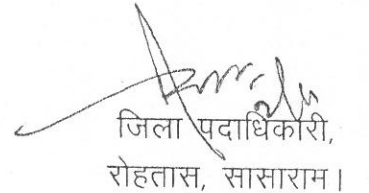 जिला पदाधिकारी,
रोहतास, सासाराम।